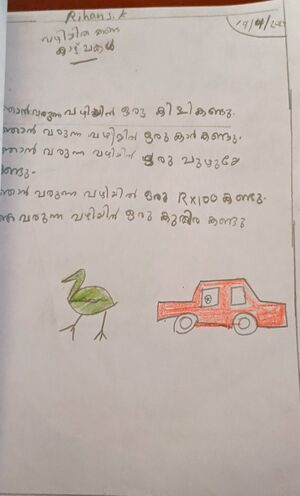 Rihan s.k
19/9/202
വഴിയിൽ കണ്ട
കാഴ്ചകൾ
ഞാൻ വരുന്ന വഴിയിൽ ഒരു കിളി കണ്ടു.
ഞാൻ വരുന്ന വഴിയിൽ ഒരു കാർ കണ്ടു.
ഞാൻ വരുന്ന വഴിയിൽ ഒരു
ണ്ടു.
ഞാൻ വരുന്ന വഴിയിൽ ഒരു Rx100 കണ്ടു.
വരുന്ന വഴിയിൽ ഒരു കുതിര കണ്ടു